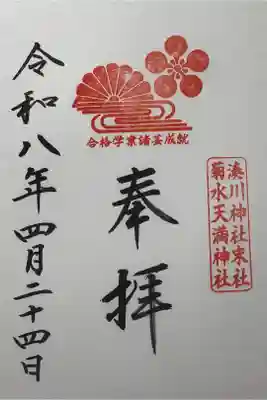 合格学業諸芸成就
湊川神社末社
菊水天満神社
奉拝
令和八年四月二十四日